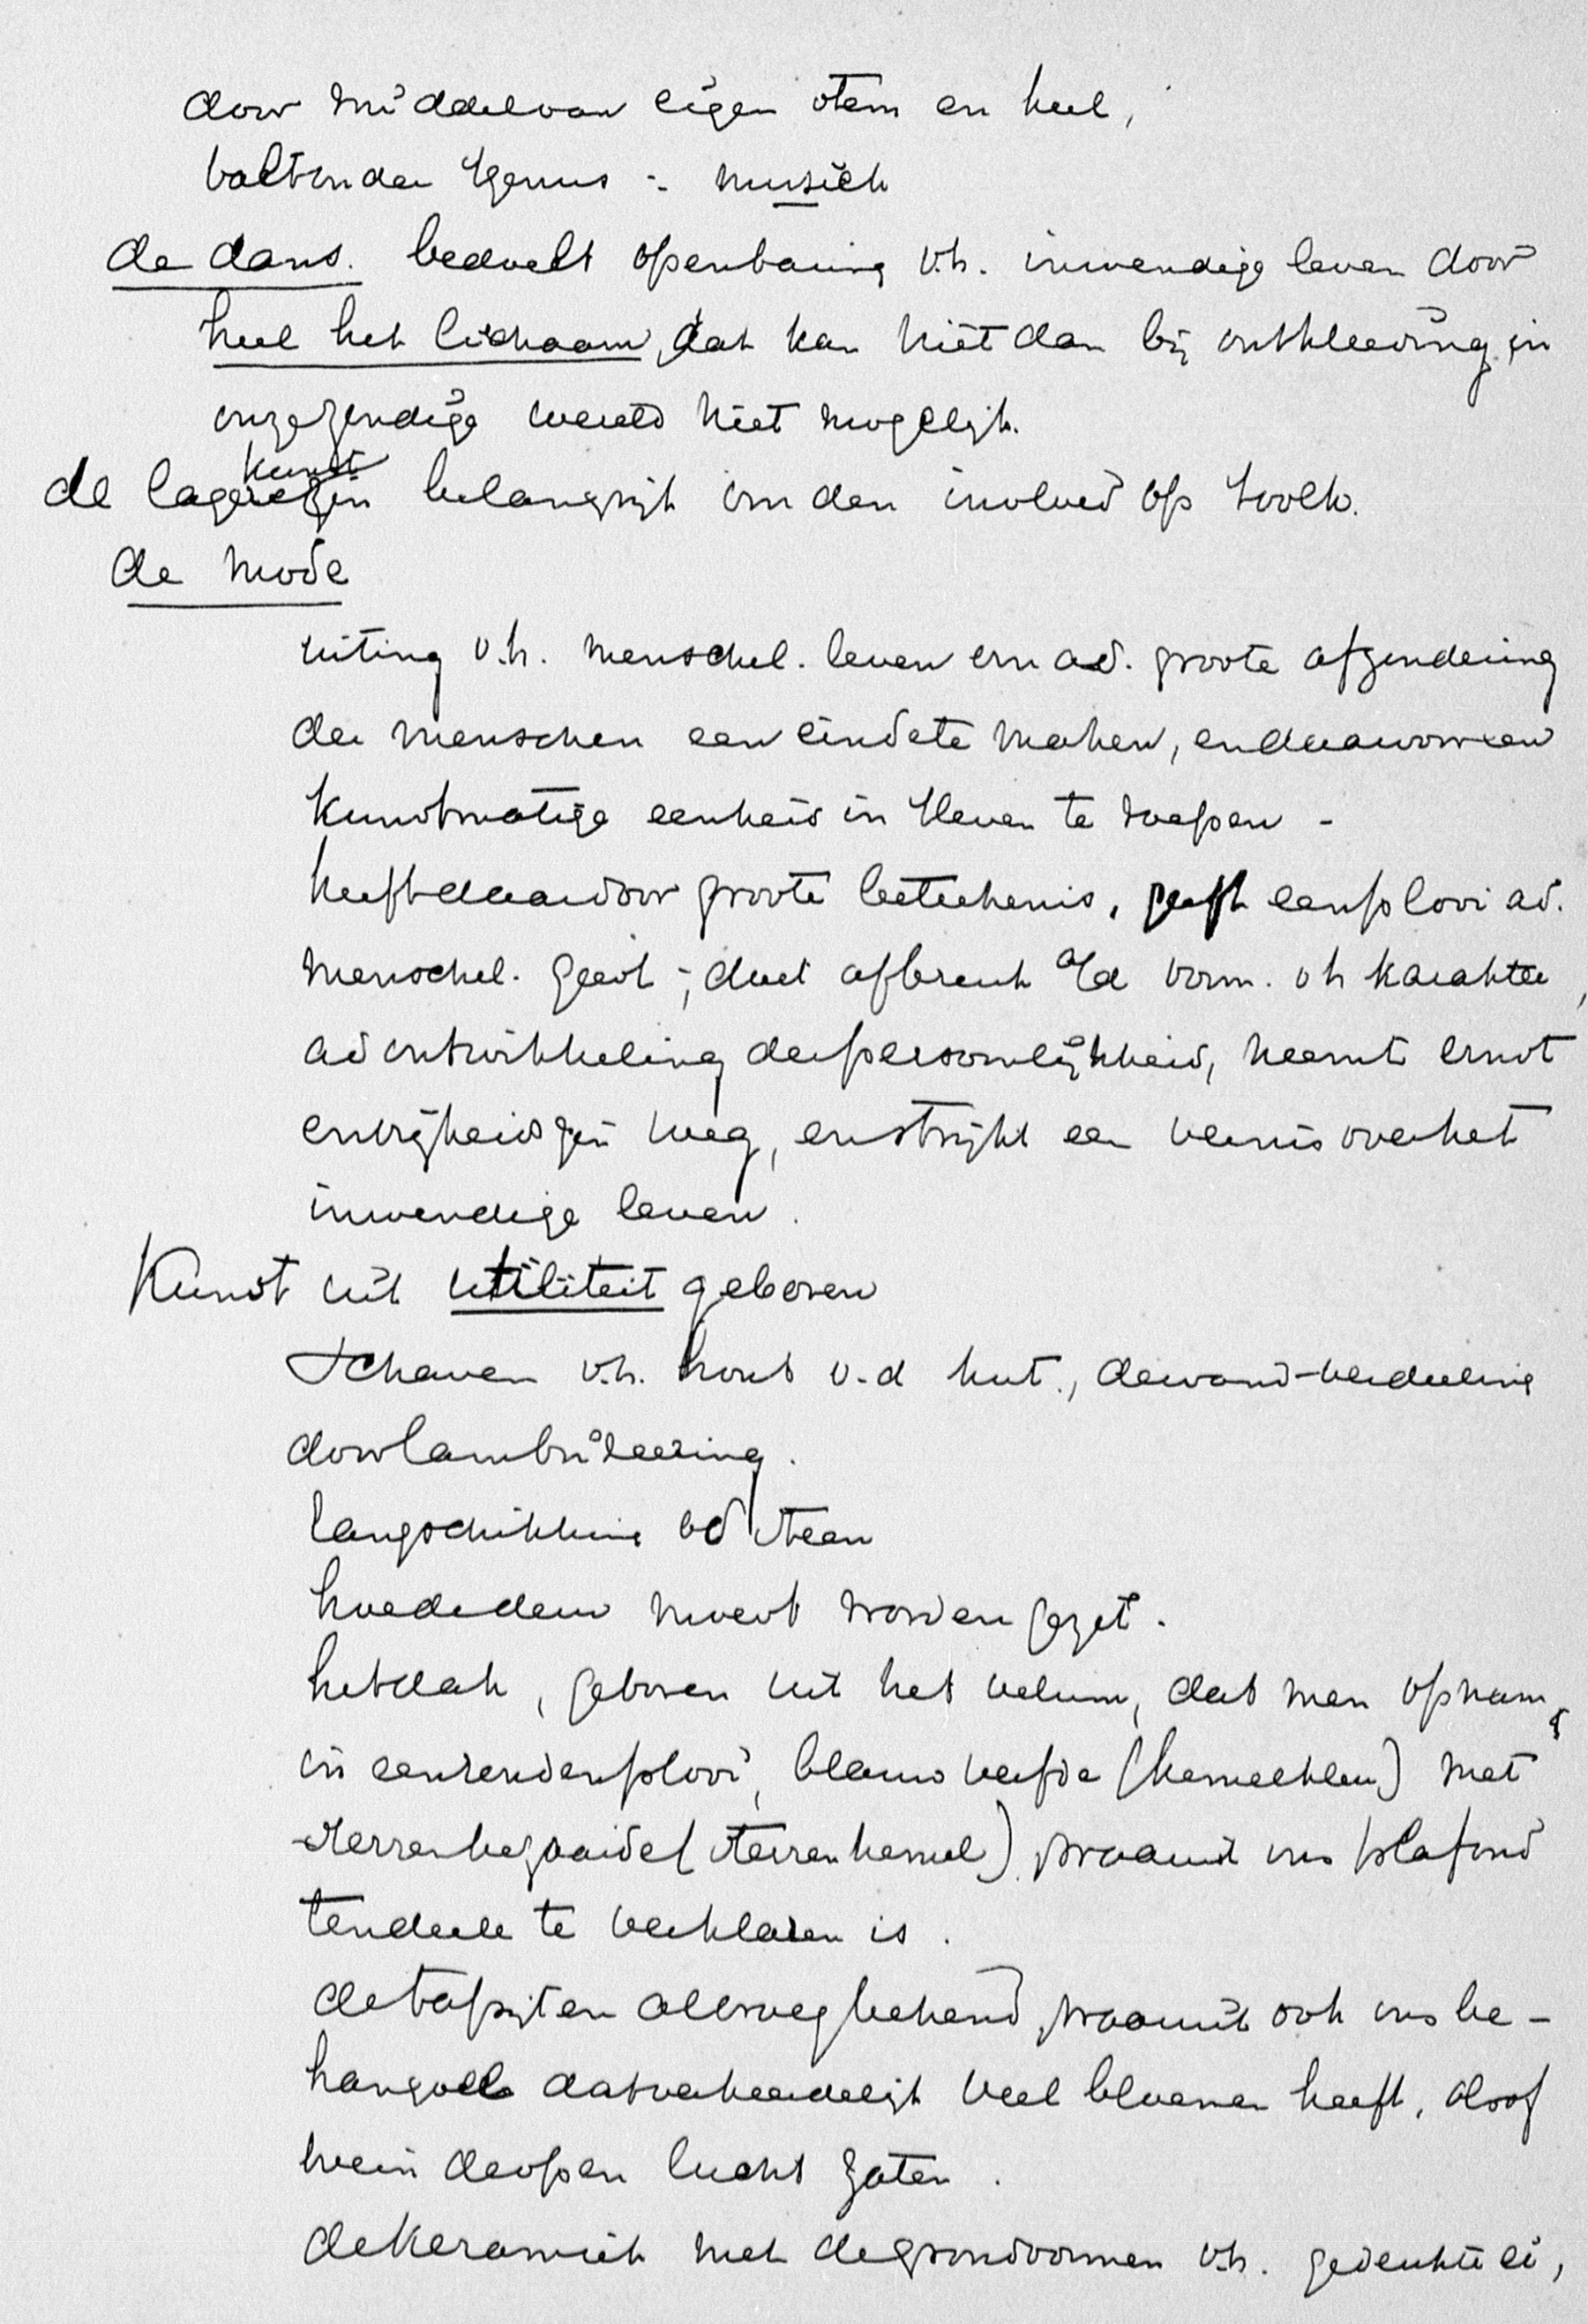 door middel van eigen stem en keel,
voltender genus - muziek
de dans. bedoelt openbaring v.h. inwendige leven door
heel het lichaam, dat kan niet dan bij ontkleeding in
onze zondige wereld niet mogelijk.
de lagere kunst zijn belangrijk om den invloed op 't volk.
de mode
uiting v.h. menschel. leven om a.d. groote afzondering
der menschen een einde te maken, en daarvoor een
kunstmatige eenheid in 't leven te roepen -
heeft daardoor groote beteekenis, geeft een plooi a.d.
menschel. geest; doet afbreuk a/d vorm. v h karakter,
a d ontwikkeling der persoonlijkheid, neemt ernst
en vrijheidszin weg, en strijkt een vernis over het
inwendige leven.
Kunst uit utiliteit geboren
Schaven v.h. hout v.d hut., de wand-verdeeling
door lambriseering.
langschikking v d steen
hoe de deur moest worden gezet.
het dak, geboren uit het velum, dat men opnam,
in een ronden plooi, blauw verfde (hemelkleur) met
sterren bezaaide (sterrenhemel) waaruit ons plafond
ten deele te verklaren is.
de tapijten alvroeg bekend, waaruit ook ons be-
hangsel dat verkeerdelijk veel bloemen heeft, alsof
we in de open lucht zaten.
de keramiek met de grondvormen v.h. gedeukte ei,